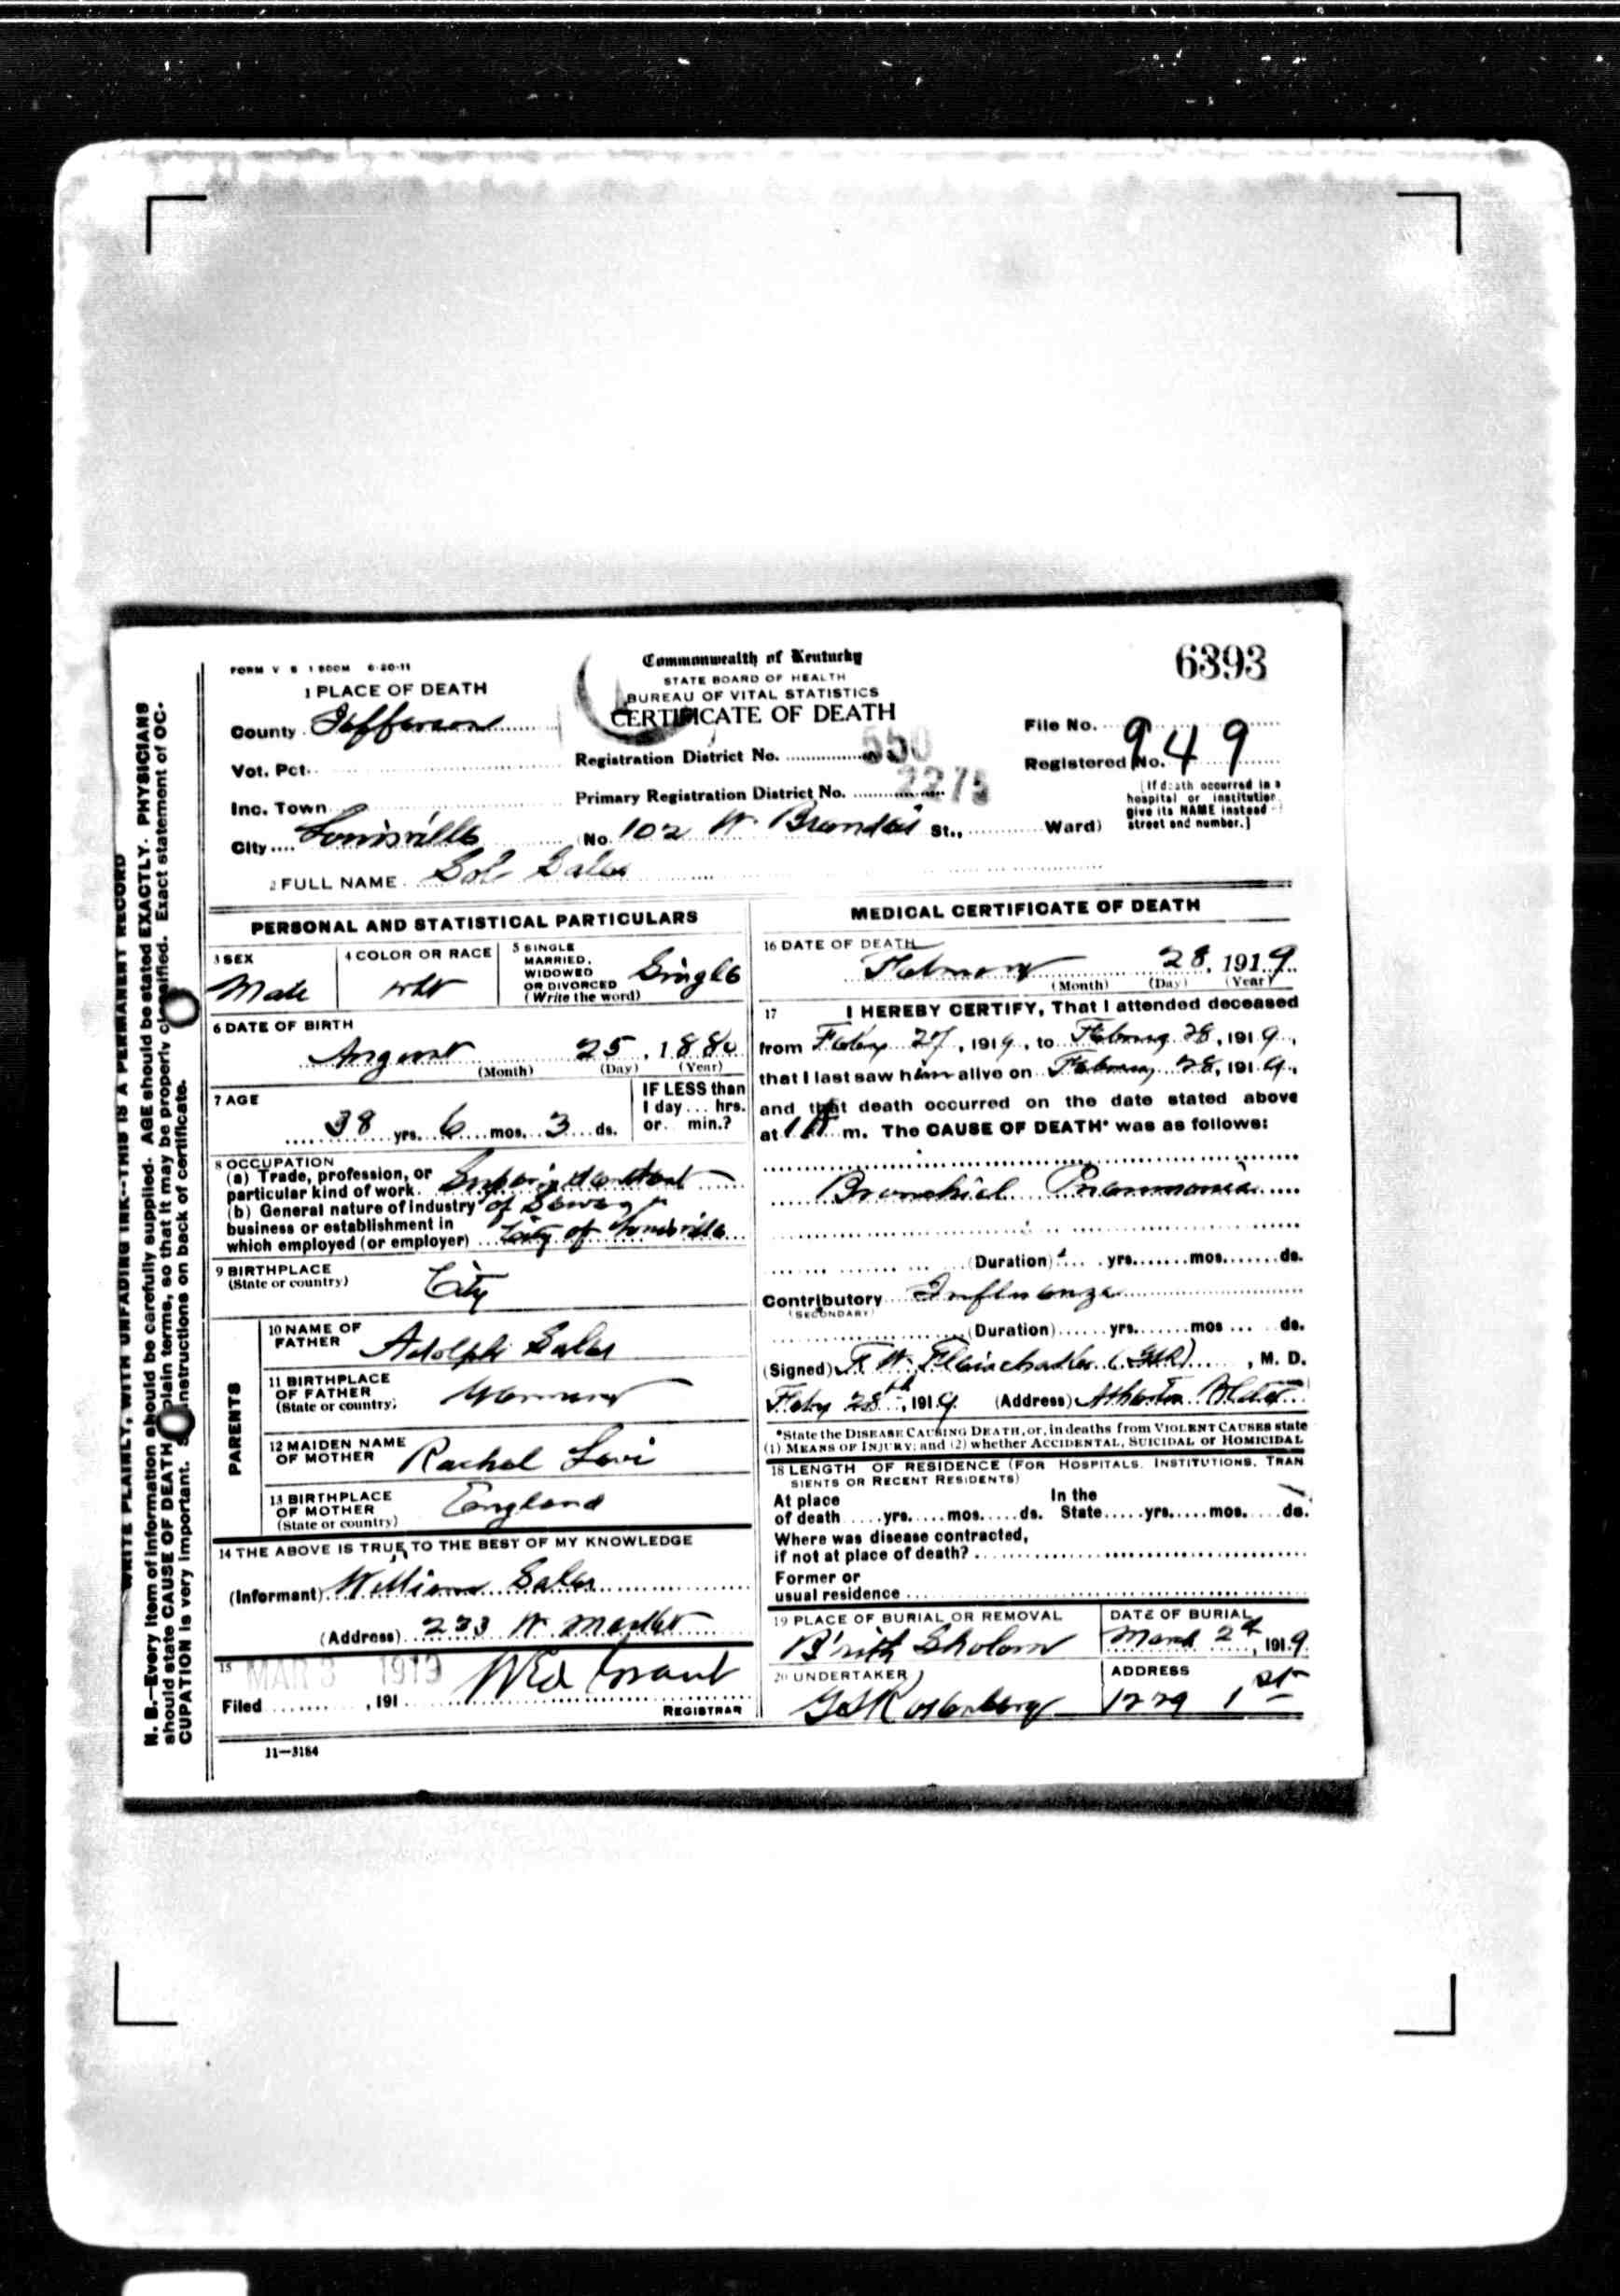 6393
FORM V S 1 500M 6-20-11
Commonwealth of Kentucky
STATE BOARD OF HEALTH
BUREAU OF VITAL STATISTICS
CERTIFICATE OF DEATH
1 PLACE OF DEATH
County Jefferson
Vot. Pct.
Inc. Town
City Louisville
Registration District No. 550
Primary Registration District No. 2275
File No.
Registered No. 949
(No. 102 W. Brandeis St., Ward)
[If death occurred in a
hospital or institution
give its NAME instead
street and number.]
2 FULL NAME Sol Sales
PERSONAL AND STATISTICAL PARTICULARS
3 SEX
Male
4 COLOR OR RACE
Wht
5 SINGLE
MARRIED,
WIDOWED
OR DIVORCED
(Write the word)
Single
6 DATE OF BIRTH
August 25, 1880
(Month) (Day) (Year)
7 AGE
38 yrs. 6 mos. 3 ds.
IF LESS than
1 day ... hrs.
or min.?
8 OCCUPATION
(a) Trade, profession, or
particular kind of work. Superintendent
(b) General nature of industry of Sewage
business or establishment in
which employed (or employer) City of Louisville
9 BIRTHPLACE
(State or country)
City
PARENTS
10 NAME OF
FATHER
Adolph Sales
11 BIRTHPLACE
OF FATHER
(State or country)
Germany
12 MAIDEN NAME
OF MOTHER
Rachel Levi
13 BIRTHPLACE
OF MOTHER
(State or country)
England
14 THE ABOVE IS TRUE TO THE BEST OF MY KNOWLEDGE
(Informant) William Sales
(Address) 233 W. Market
15
MAR 3 1919
Filed , 191
Grant
REGISTRAR
11—3184
MEDICAL CERTIFICATE OF DEATH
16 DATE OF DEATH
February 28, 1919
(Month) (Day) (Year)
17 I HEREBY CERTIFY, That I attended deceased
from Feby 27, 1919, to February 28, 1919,
that I last saw him alive on February 28, 1919,
and that death occurred on the date stated above
at m. The CAUSE OF DEATH* was as follows:
Bronchial Pneumonia
(Duration) yrs. mos. ds.
Contributory Influenza
(SECONDARY)
(Duration) yrs. mos ds.
(Signed) , M. D.
Feby 28th, 1919 (Address) Atherton Bldg
*State the DISEASE CAUSING DEATH, or, in deaths from VIOLENT CAUSES state
(1) MEANS OF INJURY; and (2) whether ACCIDENTAL, SUICIDAL or HOMICIDAL
18 LENGTH OF RESIDENCE (FOR HOSPITALS, INSTITUTIONS, TRAN
SIENTS OR RECENT RESIDENTS)
At place In the
of death yrs. mos. ds. State yrs. mos. ds.
Where was disease contracted,
if not at place of death?
Former or
usual residence
19 PLACE OF BURIAL OR REMOVAL
B'rith Sholom
DATE OF BURIAL
March 2d, 1919
20 UNDERTAKER
G S Rosenberg
ADDRESS
1229 1st
WRITE PLAINLY, WITH UNFADING INK--THIS IS A PERMANENT RECORD
N. B.—Every item of information should be carefully supplied. AGE should be stated EXACTLY. PHYSICIANS
should state CAUSE OF DEATH plain terms, so that it may be properly classified. Exact statement of OC-
CUPATION is very important. instructions on back of certificate.